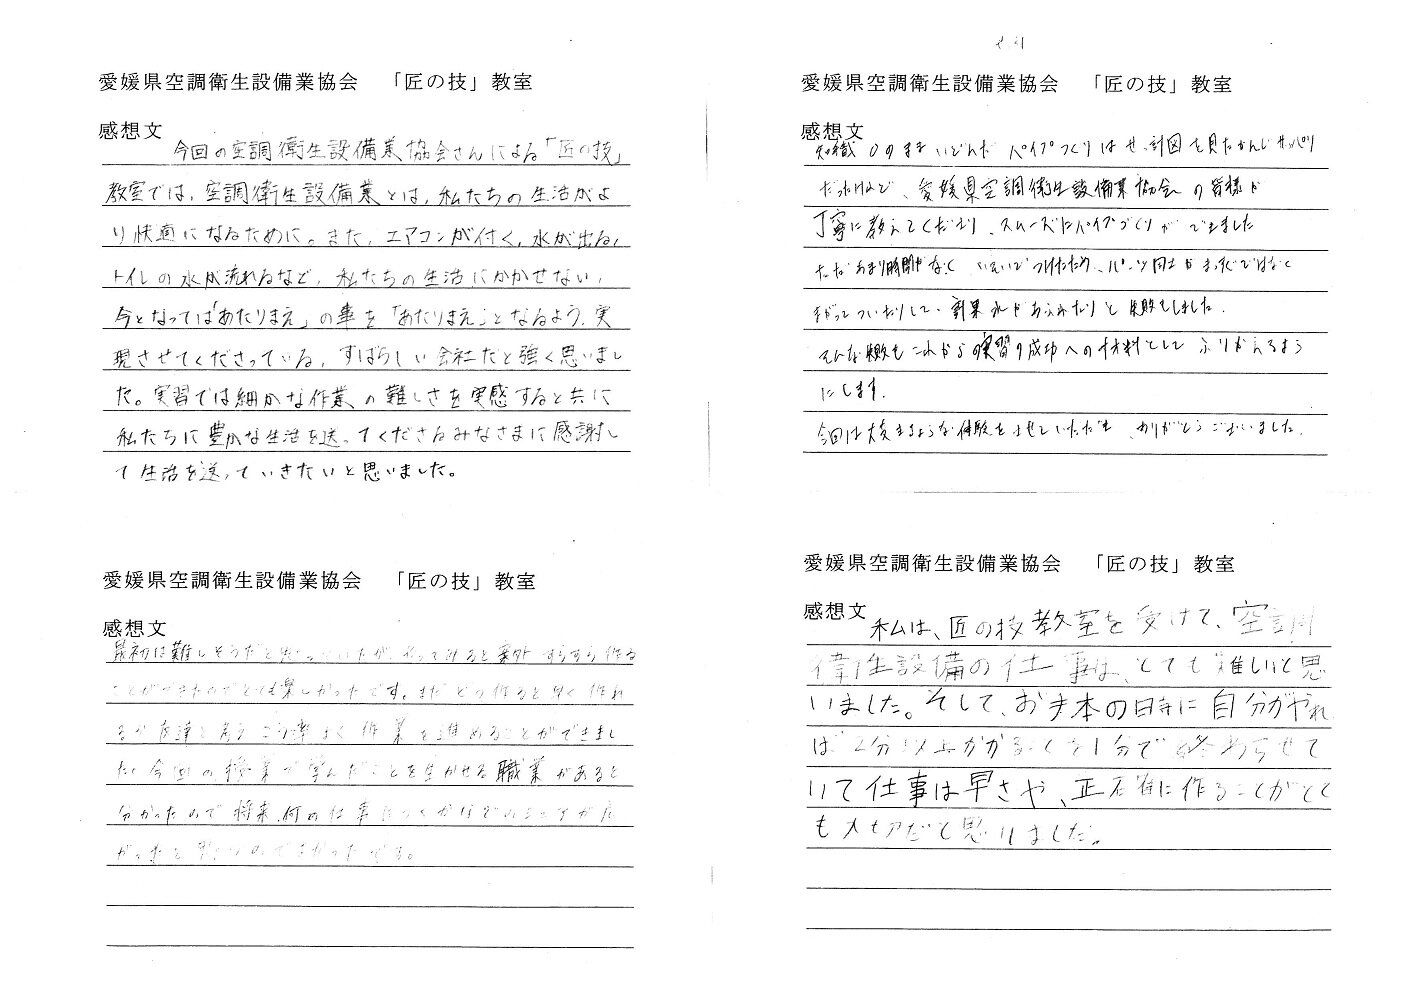 愛媛県空調衛生設備業協会　「匠の技」教室
感想文
今回の空調衛生設備業協会さんによる「匠の技」
教室では、空調衛生設備業とは、私たちの生活がよ
り快適になるために。また、エアコンが付く、水が出る、
トイレの水が流れるなど、私たちの生活にかかせない、
今となっては「あたりまえ」の事を「あたりまえ」となるよう、実
現させてくださっている、すばらしい会社だと強く思いまし
た。実習では細かな作業の難しさを実感すると共に
私たちに豊かな生活を送ってくださるみなさまに感謝し
て生活を送っていきたいと思いました。
愛媛県空調衛生設備業協会　「匠の技」教室
感想文
知識0のままいどんだパイプづくりはせっ計図を見たかんじサッパリ
だったけれど、愛媛県空調衛生設備業協会の皆様が
丁寧に教えてくださり、スムーズにパイプづくりができました
ただあまり時間がなく いそいでつけたため、パーツ同士がまっすぐではなく
まがってついたりして、結果水があふれたりと失敗もしました。
そんな失敗もこれからの実習の成功への材料としてふりかえるよう
にします。
今回は大変きちょうな体験をさせていただき、ありがとうございました。
愛媛県空調衛生設備業協会　「匠の技」教室
感想文
最初は難しそうだと思っていたが、やってみると案外すらすら作る
ことができたのでとても楽しかったです。まだどう作ると早く作れ
るか友達と考え こう率よく作業を進めることができまし
た。今回の授業で学んだことを生かせる職業があると
分かったので将来、何の仕事につくかなどの
愛媛県空調衛生設備業協会　「匠の技」教室
感想文
私は、匠の技教室を受けて、空調
衛生設備の仕事は、とても難しいと思
いました。そして、お手本の時に自分がやれ
ば2分以上かかることを1分で終わらせて
いて仕事は早さや、正確に作ることがとて
も大切だと思いました。